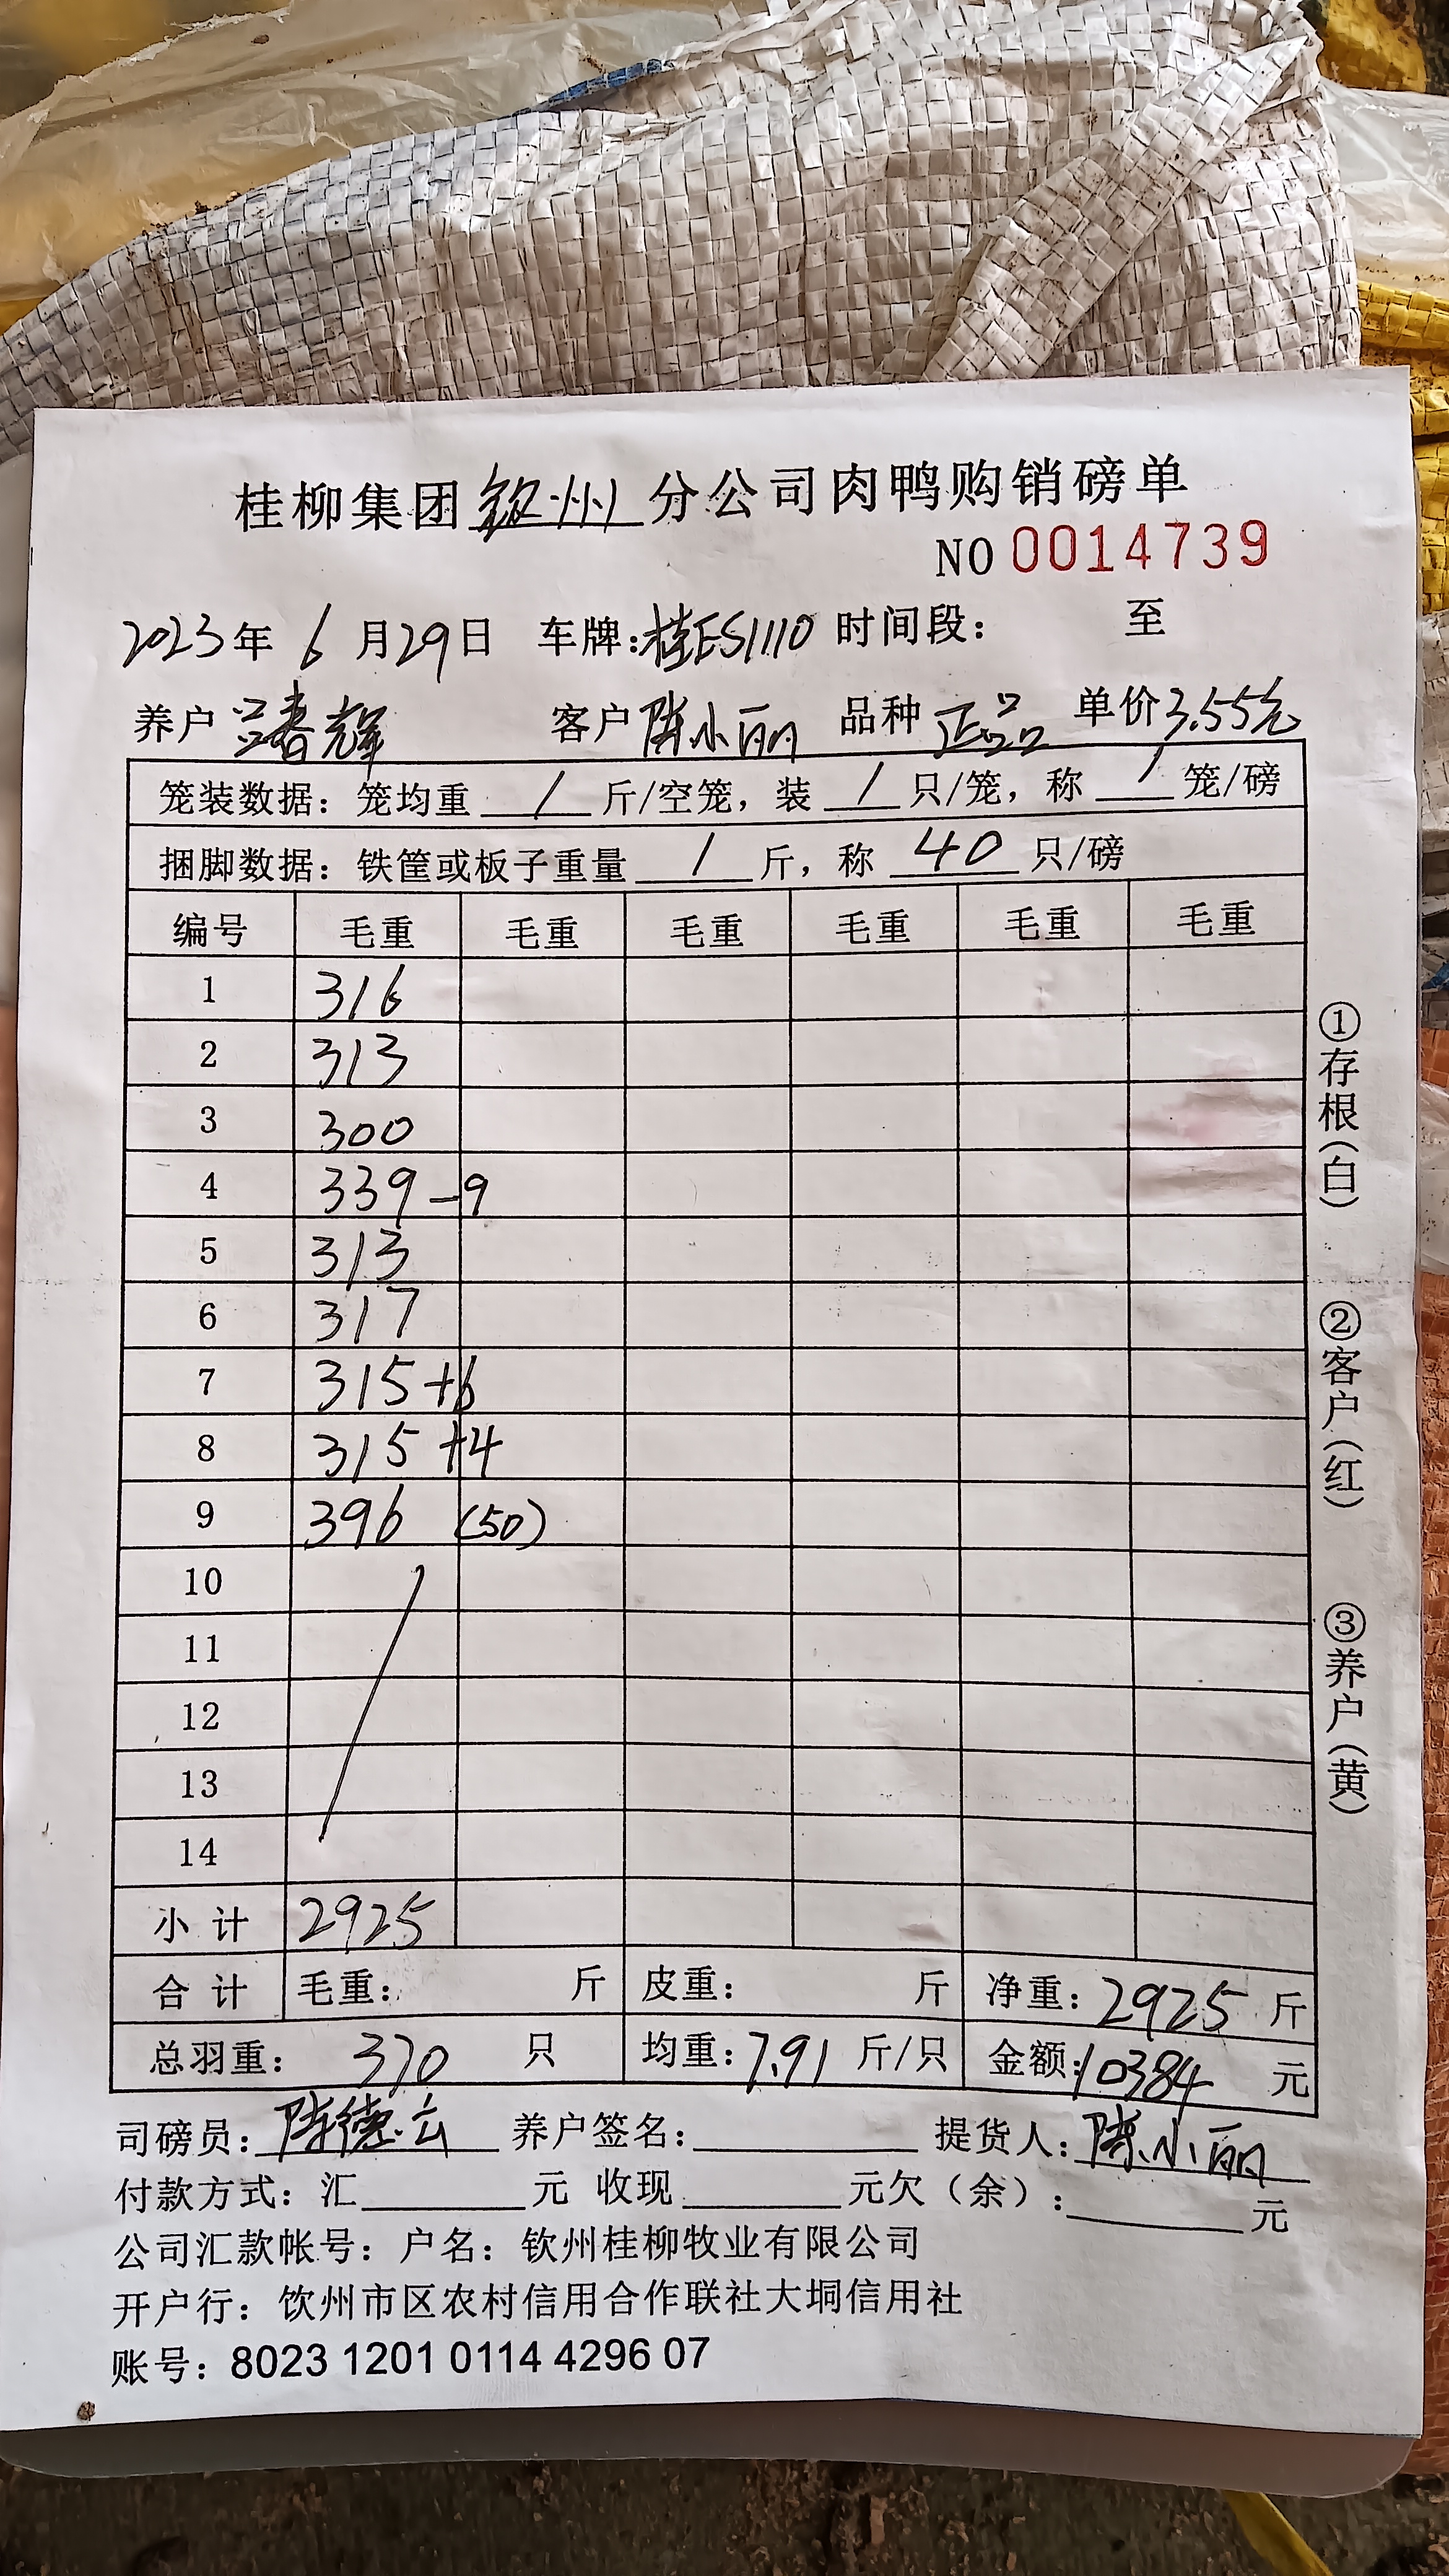 桂柳集团钦州分公司肉鸭购销磅单
NO 0014739
2023年 6 月29日 车牌:桂ES1110 时间段: 至
养户 吕春辉 客户 陈小丽 品种 正品 单价3.55元
笼装数据: 笼均重 / 斤/空笼, 装 / 只/笼, 称 / 笼/磅
捆脚数据: 铁筐或板子重量 / 斤, 称 40 只/磅
编号 毛重 毛重 毛重 毛重 毛重 毛重
1 316
2 313
3 300
4 339-9
5 313
6 317
7 315+6
8 315+4
9 396 (50)
10
11
12
13
14
小计 2925
合计 毛重: 斤 皮重: 斤 净重: 2925 斤
总羽重: 370 只 均重: 7.91 斤/只 金额: 10384 元
司磅员: 陈德云 养户签名: 提货人: 陈小丽
付款方式: 汇 元 收现 元欠(余): 元
公司汇款帐号: 户名: 钦州桂柳牧业有限公司
开户行: 饮州市区农村信用合作联社大垌信用社
账号: 8023 1201 0114 4296 07
①存根(白)
②客户(红)
③养户(黄)